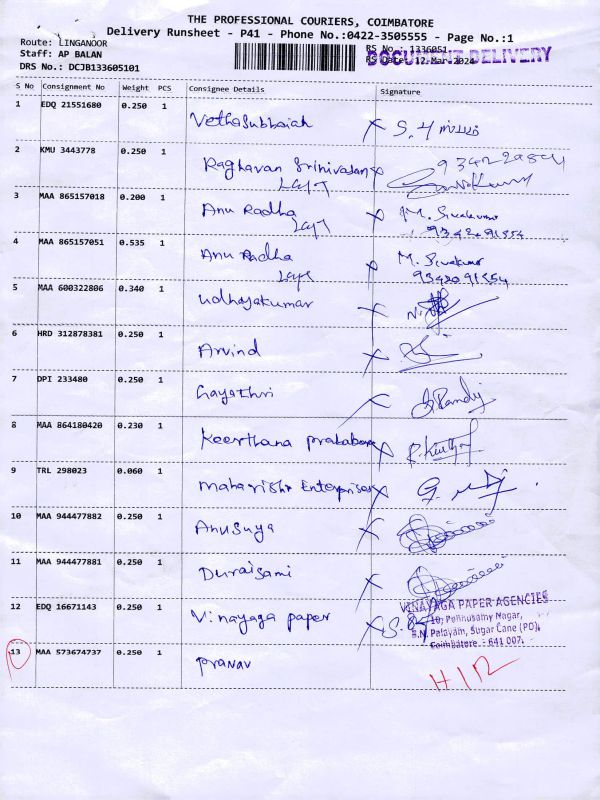 THE PROFESSIONAL COURIERS, COIMBATORE
Delivery Runsheet - P41 - Phone No.:0422-3505555 - Page No.:1
Route: LINGANOOR
RS No.: 1336051
Staff: AP BALAN
DOCUMENT DELIVERY
RS Date: 12-Mar-2024
DRS No.: DCJB133605101
S No Consignment No Weight PCS Consignee Details Signature
1 EDQ 21551680 0.250 1 Vethasubbaiah X
2 KMU 3443778 0.250 1 Raghavan Srinivasan X
3 MAA 865157018 0.200 1 Anu Radha X M. Sivakumar
4 MAA 865157051 0.535 1 Anu Radha X M. Sivakumar
5 MAA 600322806 0.340 1 Udhayakumar X
6 HRD 312878381 0.250 1 Arvind X
7 DPI 233480 0.250 1 Gayathri X
8 MAA 864180420 0.230 1 Keerthana prabakaran X
9 TRL 298023 0.060 1 Maharishi Enterprises X
10 MAA 944477882 0.250 1 Anusuya X
11 MAA 944477881 0.250 1 Duraisami X
12 EDQ 16671143 0.250 1 Vinayaga paper X
VINAYAGA PAPER AGENCIES
10, Ponnusamy Nagar,
B.N. Palayam, Sugar Cane (PO),
Coimbatore - 641 007.
13 MAA 573674737 0.250 1 Pranav